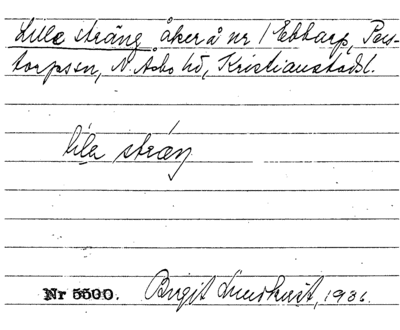 Lille sträng åker å nr 1 Ebbarp, Pers-
torpssn, N. Åsbo hd, Kristianstadsl.
lila stræŋ
Nr 5500. Birgit Lundkvist, 1936.